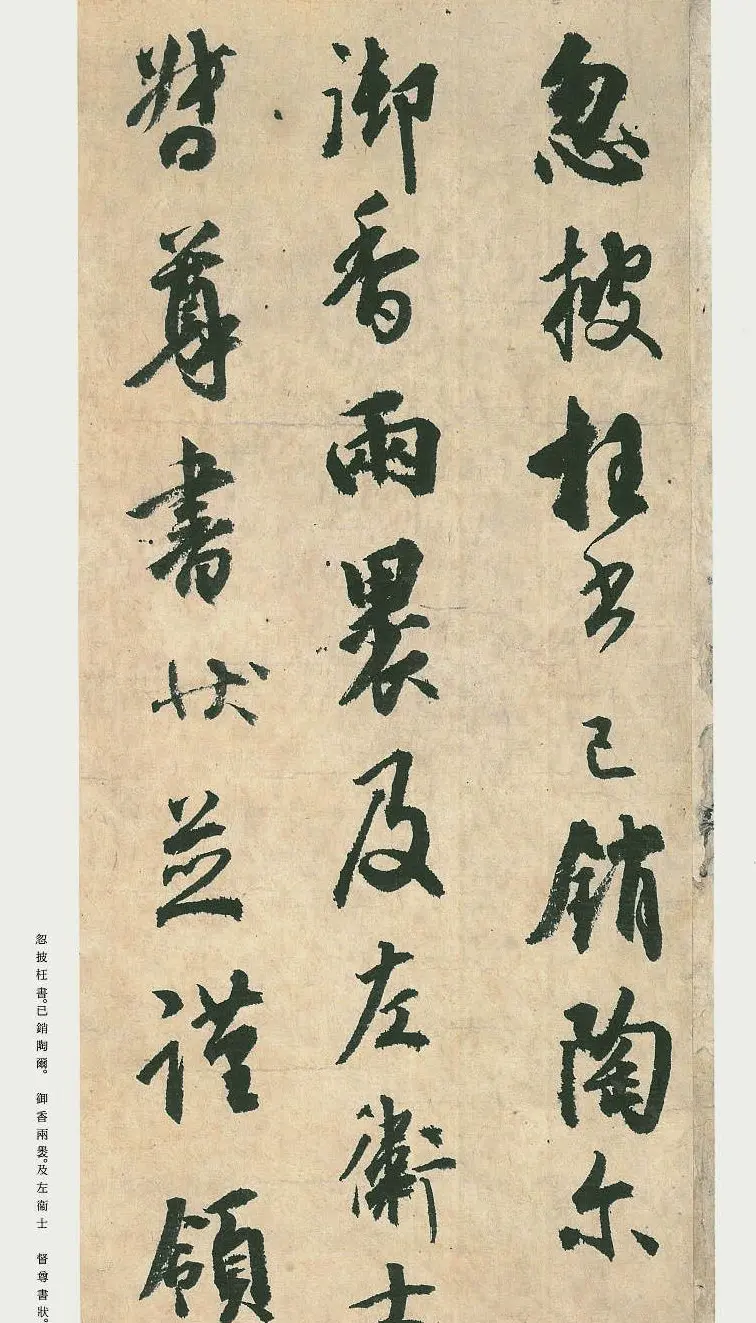 忽披枉書已銷陶尓
御香兩裹及左衛士
督尊書状並謹領
忽披枉書。已銷陶爾。　御香兩裹。及左衞士　督尊書狀。